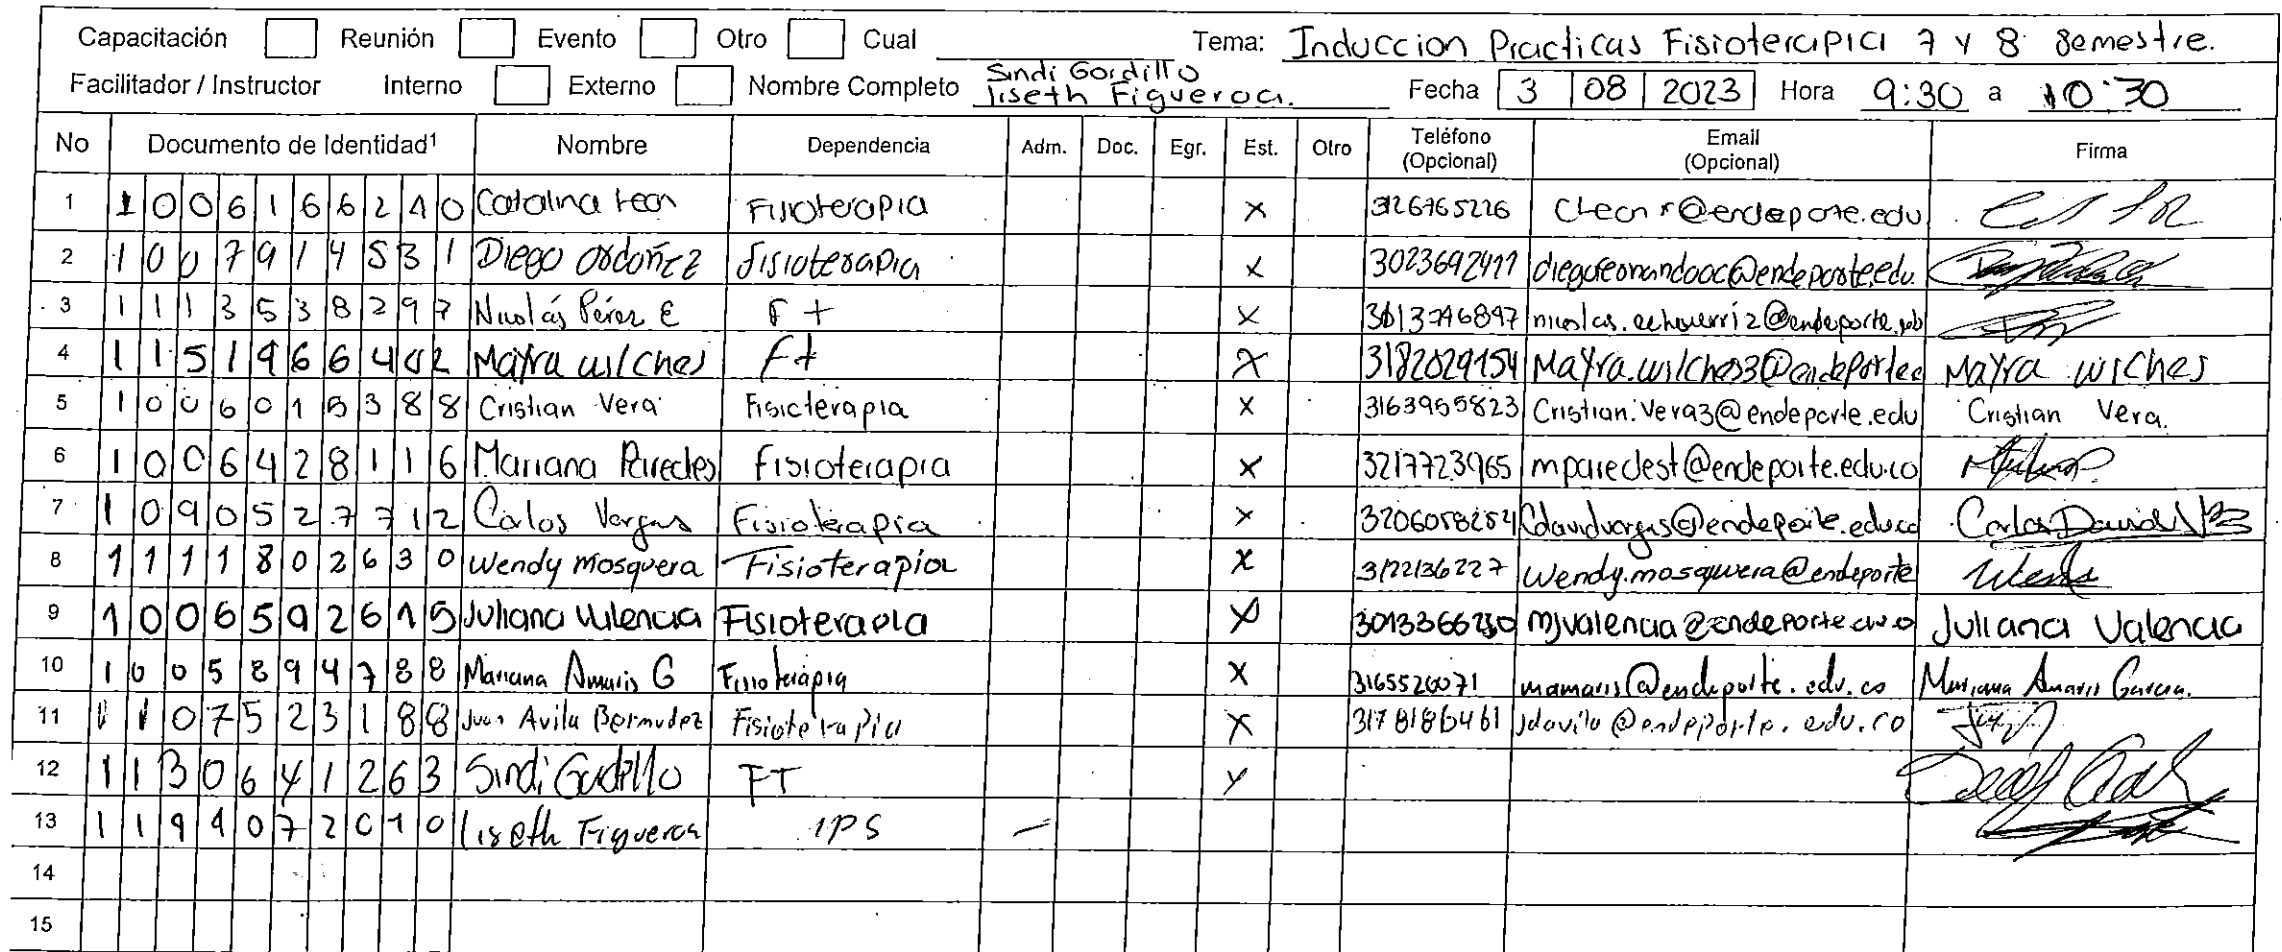 Capacitación Reunión Evento Otro Cual Tema: Induccion Practicas Fisioterapia 7 y 8 Semestre.
Facilitador / Instructor Interno Externo Nombre Completo Sindi Gordillo
liseth Figueroa. Fecha 3 08 2023 Hora 9:30 a 10:30
No Documento de Identidad¹ Nombre Dependencia Adm. Doc. Egr. Est. Otro Teléfono (Opcional) Email (Opcional) Firma
1 1006166210 Catalina Leon Fisioterapia x 3126765226 cleonr@endeporte.edu
2 1007914531 Diego Ordoñez fisioterapia x 3023692411 diegofernandooc@endeporte.edu.
3 1113538297 Nicolás Pérez E F t x nicolas.echeverri2@endeporte
4 1151966402 Mayra wilches Ft x 3182029154 Mayra.wilches3@endeporte Mayra wilches
5 1006015388 Cristian Vera Fisioterapia x 3163955823 Cristian.Vera3@endeporte.edu Cristian Vera.
6 1006428116 Mariana Paredes Fisioterapia x 3217723965 mparedest@endeporte.edu.co
7 1090527712 Carlos Vargas Fisioterapia x 3206058254 Cdavidvargas@endeporte.edu.co Carlos David
8 1111802630 Wendy mosquera Fisioterapia x 3122136227 Wendy.mosquera@endeporte
9 1006592615 Juliana Valencia Fisioterapia x 3013366230 mjvalencia@endeporte Juliana Valencia
10 1005894788 Mariana Amaris G Fisioterapia x 3165526071 mamaris@endeporte.edu.co Mariana Amaris Garcia.
11 1107523188 Juan Avila Bermudez Fisioterapia x 3178186461 jdavila@endeporte.edu.co
12 1130641263 Sindi Gordillo FT x
13 1194072010 liseth Figueroa IPS –
14
15